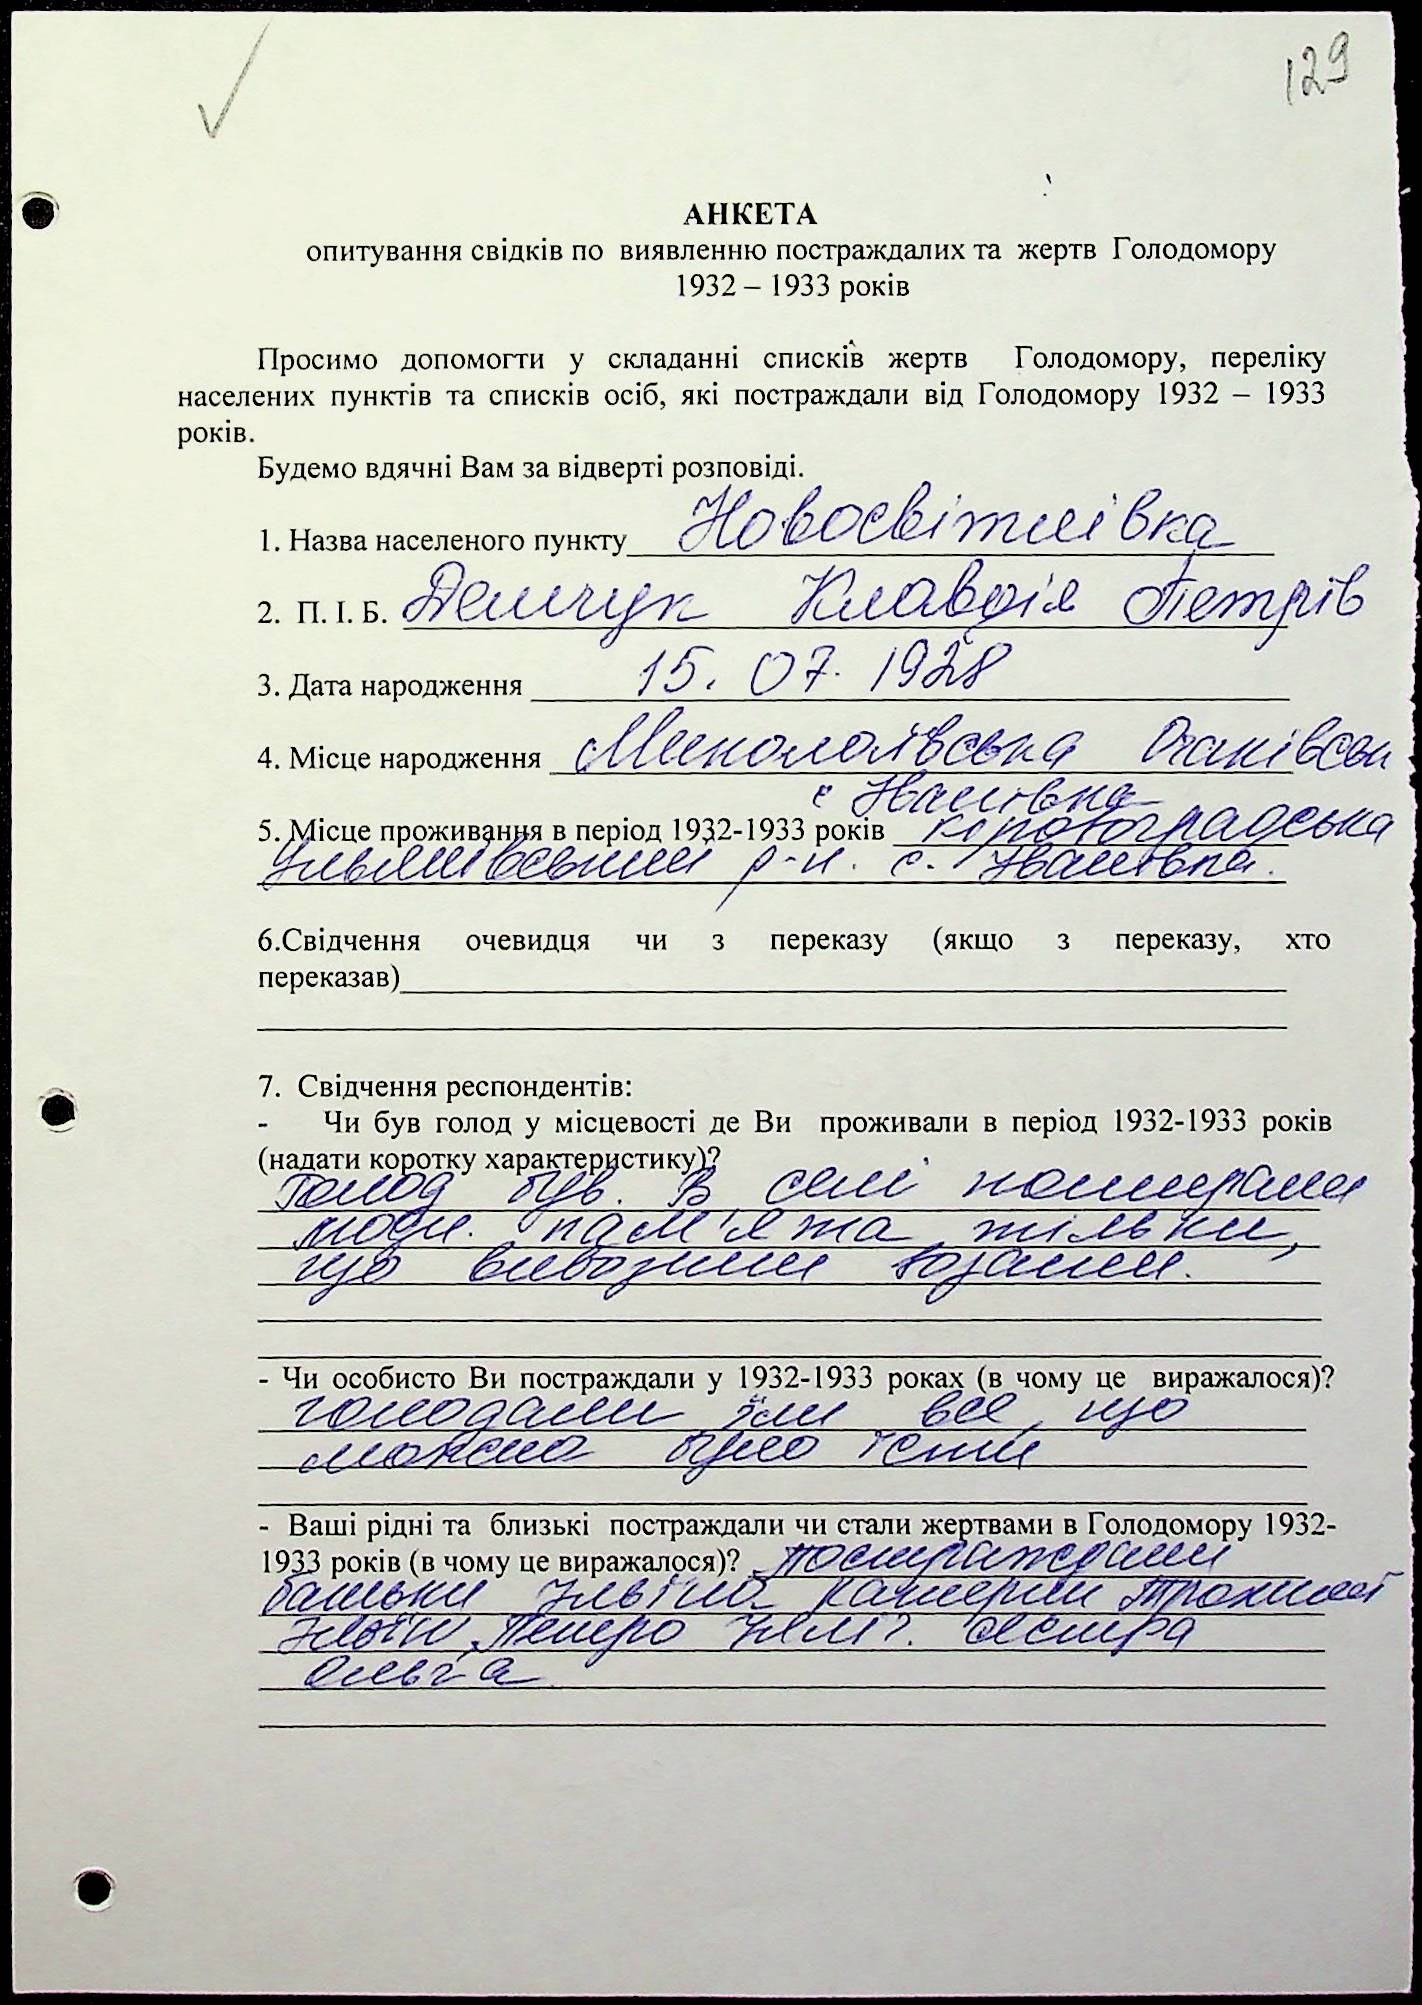 129
АНКЕТА
опитування свідків по виявленню постраждалих та жертв Голодомору
1932 – 1933 років
Просимо допомогти у складанні списків жертв Голодомору, переліку
населених пунктів та списків осіб, які постраждали від Голодомору 1932 – 1933
років.
Будемо вдячні Вам за відверті розповіді.
1. Назва населеного пункту Новосвітлівка
2. П. І. Б. Демчук Клавдія Петрів
3. Дата народження 15. 07. 1928
4. Місце народження Миколаївська
с Іванівка
5. Місце проживання в період 1932-1933 років кіровоградська
р-н. с. Іванівка.
6.Свідчення очевидця чи з переказу (якщо з переказу, хто
переказав)
7. Свідчення респондентів:
- Чи був голод у місцевості де Ви проживали в період 1932-1933 років
(надати коротку характеристику)?
Голод був. В селі помирали
люди. пам'ята тільки,
що вивозили возами.
- Чи особисто Ви постраждали у 1932-1933 роках (в чому це виражалося)?
голодали їли все, що
можно було їсти
- Ваші рідні та близькі постраждали чи стали жертвами в Голодомору 1932-
1933 років (в чому це виражалося)? постраждали
батьки
Петро сестра
Ольга